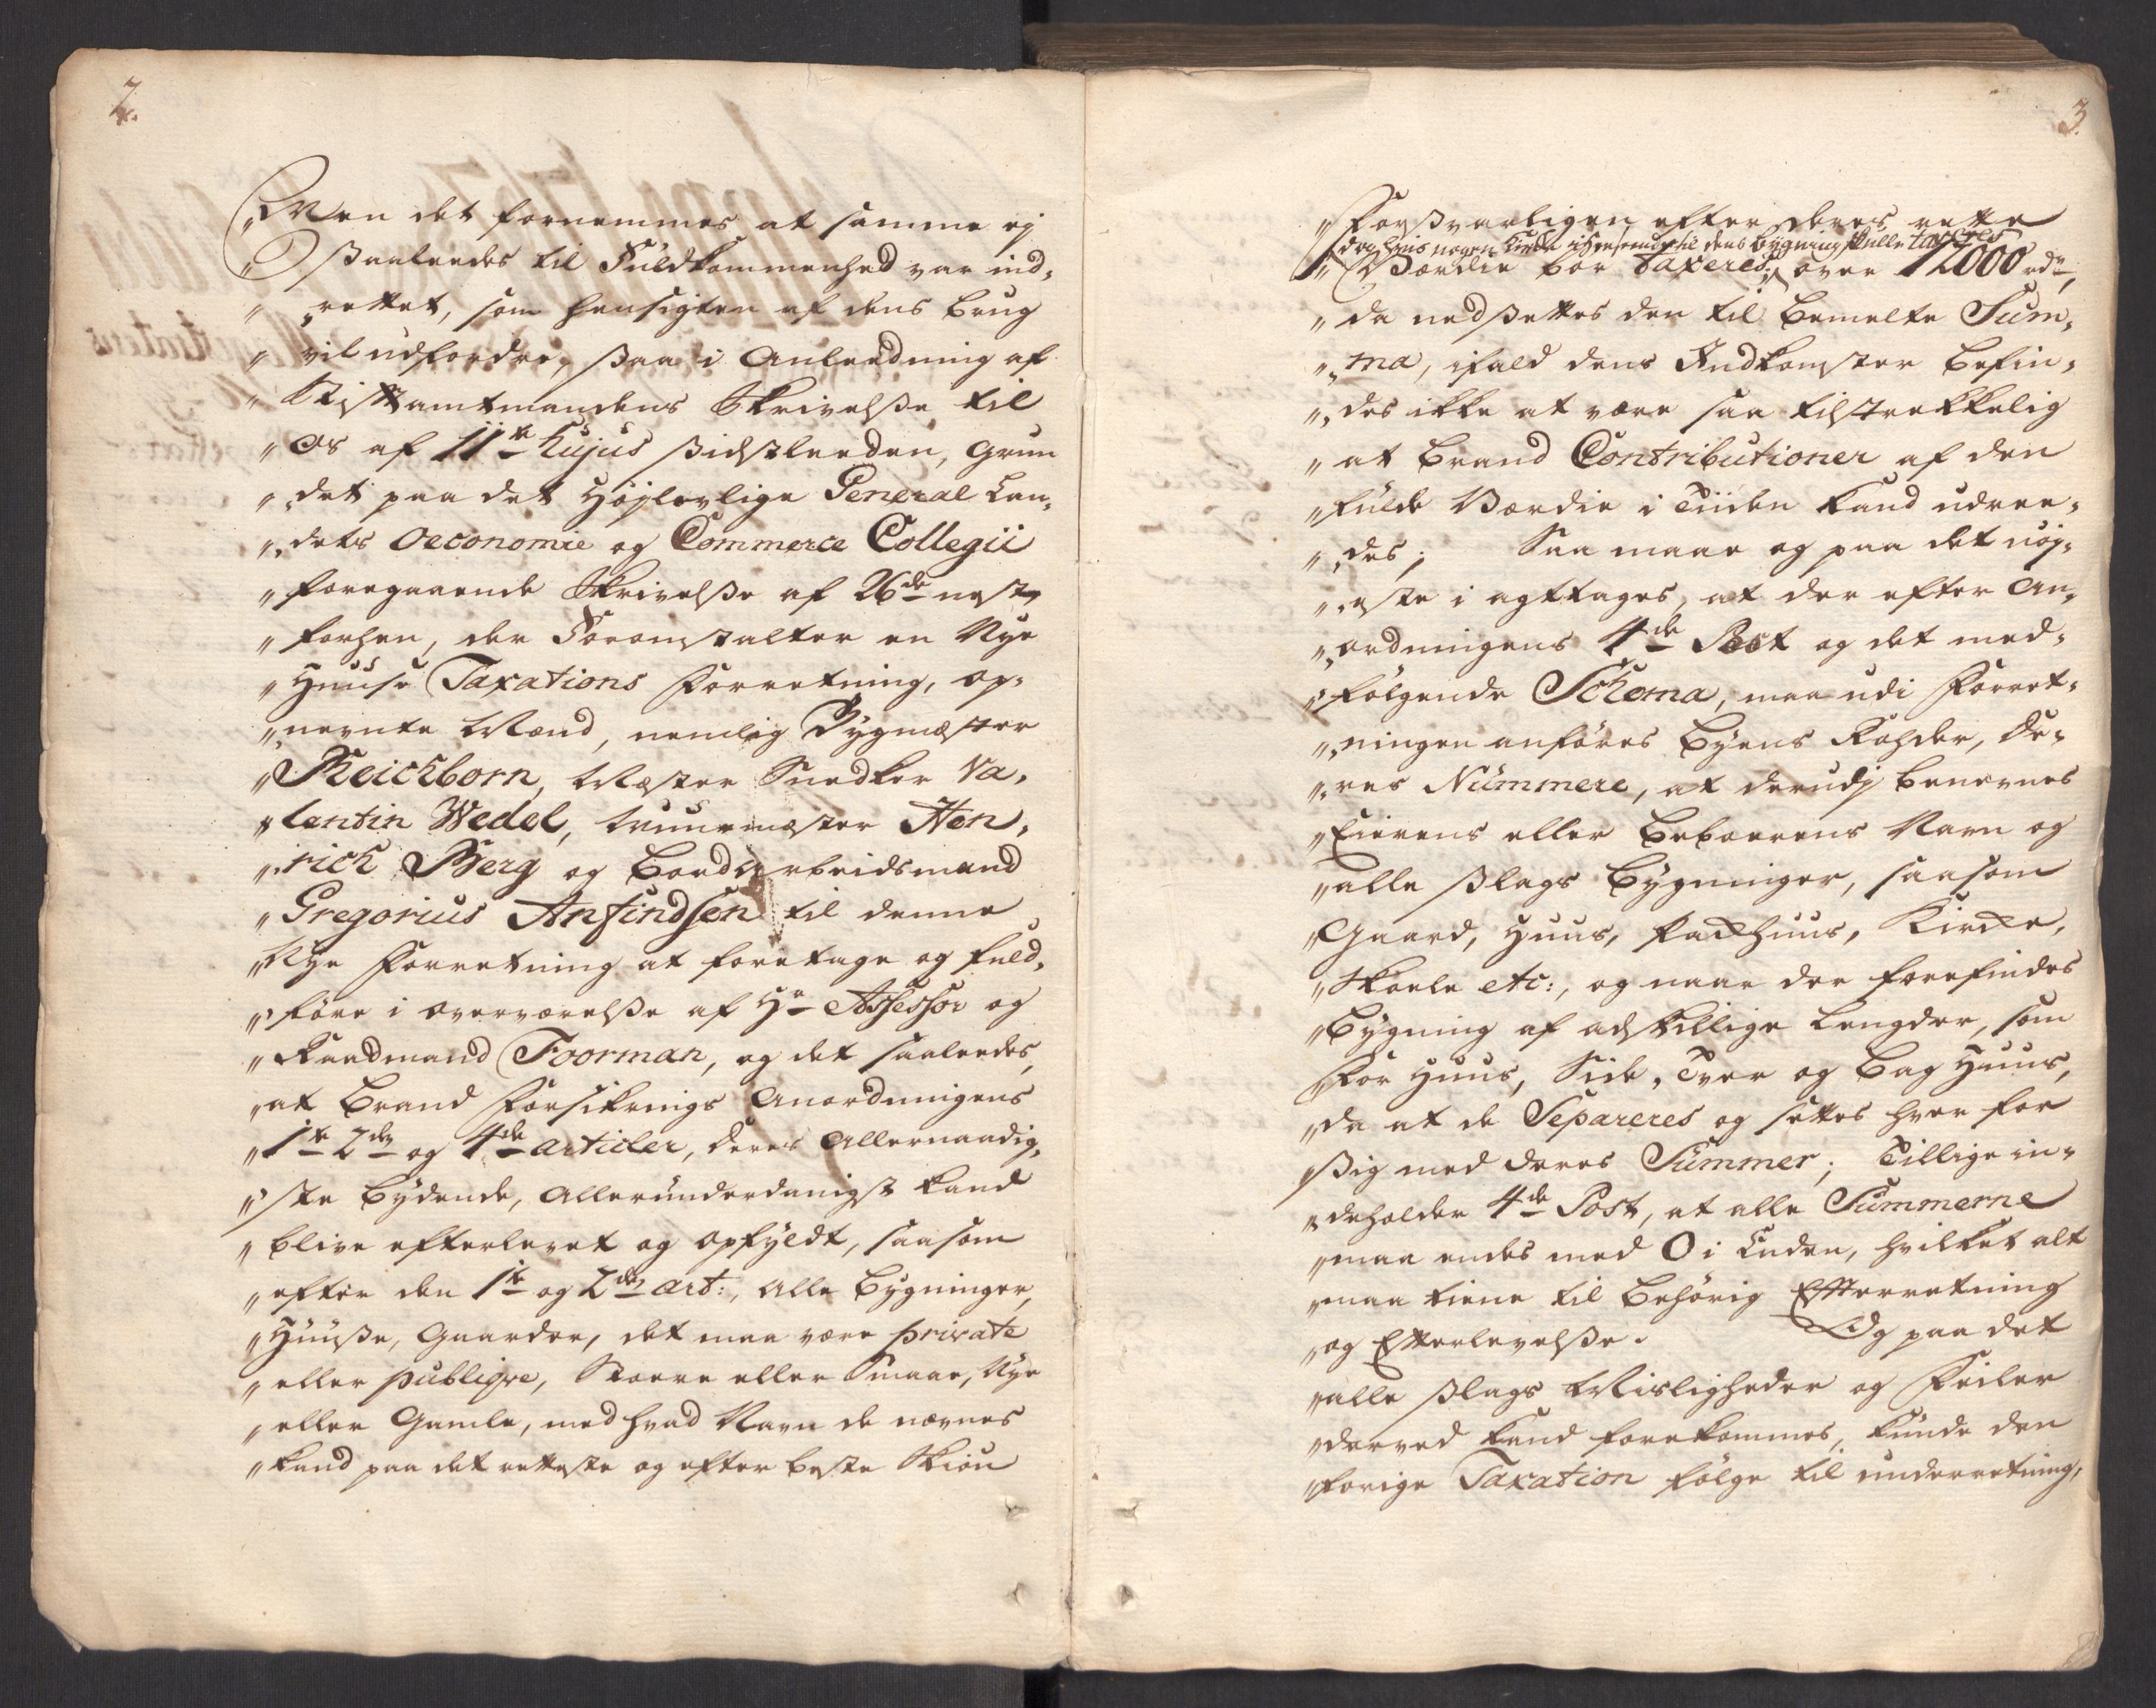 2.
„Men det fornemmes at samme ej
„ ßaaleedes til Fuldkommenhed var ind,
„ „rettet, som hensigten af dens brug
„ vil udfordre, ßaa i Anleedning af
„ Stiftamtmandens Skrivelße til
„ Os af 11te hujus ßidstleeden, grun
„ „det paa det Høylovlige General Lan,
„ „dets Oeconomie og Commerce Collegii
„ foregaaende Skrivelße af 26de nest
„ forhen, der Foranstalter en Nye
„ Huuse Taxations Forretning, op,
„ nevnte Mænd, nemlig Bygmæster
„ Reichborn, Mæster Snedker Va,
„ lentin Wedel, Muurmæster Hen,
„ „rich Berg og Bordarbeidsmand
„ Gregorius Anfindsen til denne
„ Nye Forretning at foretage og fuld,
„ „føre i overværelße af Hr Assessor og
„ Raadmand Foorman, og det saaleedes,
„ at Brand Forsikrings Anordningens
„ 1te 2den og 4de articler, deres Allernaadig,
„ „ste bydende, Allerunderdanigst kand
„ blive efterlevet og opfyldt, saasom
„ efter den 1te og 2den art:, Alle Bygninger,
„ Huuße, Gaarder, det maa være private
„ eller publiqve, Stoere eller Smaae, Nye
„ eller Gamle, med hvad Navn de nævnes
„ kand paa det retteste og efter beste Skiøn
3.
„ Forßvarligen efter deres rette
dog hvis nogen Kirke i Henseende til dens bygning skulle taxeres
„ Værdie bør Taxeres; over 12000 rdr,
„ da nedßettes den til bemelte Sum,
„ „ma, ifald dens Indkomster befin,
„ „des ikke at være saa tilstrekkelig
„ at Brand Contributioner af den
„ fulde Værdie i Tiiden kand udree,
„ „des; Saa maae og paa det nøy,
„ „este i agttages, at der efter An,
„ „ordningens 4de Post og det med,
„ „følgende Schema, maa udi Forret,
„ „ningen anføres Byens Rohder, De,
„ „res Nummere, at derudj benevnes
„ Eierens eller Beboerens Navn og
„ alle ßlags Bygninger, saasom
„ Gaard, Huus, Pachhuus, Kirche,
„ Skoele etc:, og naar der forefindes
„ Bygning af adskillige Lengder, som
„ For Huus, Side, Tver og Bag Huus,
„ da at de Separeres og settes hver for
„ ßig med deres Summer; Tillige in,
„ „deholder 4de Post, at alle Summerne
„ maa endes med 0 i Enden, hvilket alt
„ maa tiene til behørig Efterretning
„ og Efterlevelße. Og paa det
„ alle ßlags Misligheder og Feiler
„ derved kand forekommes, kunde den
„ forige Taxation følge til underretning,